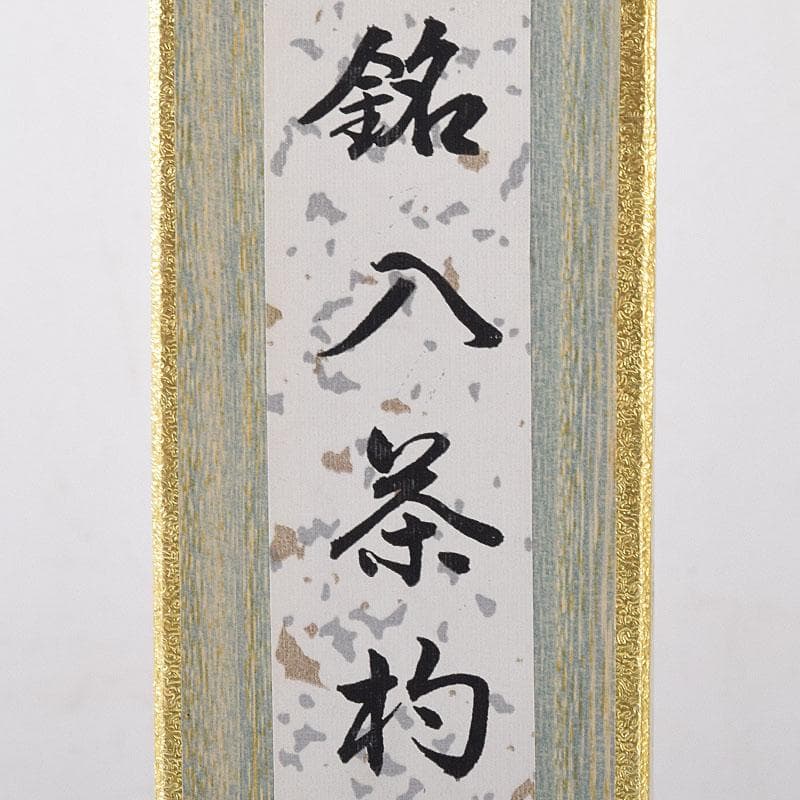 銘入茶杓